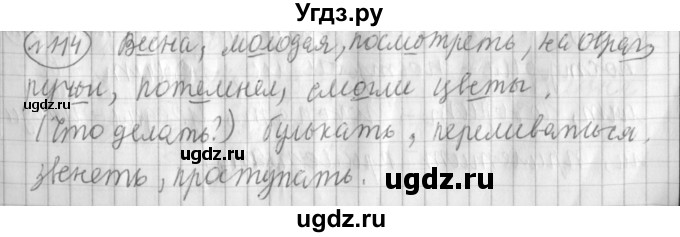 Угдз.ру
п114 Весна, молодая, посмотреть, на овраг,
ручьи, потемнел, смогли цветы.
(Что делать?) булькать, переливаться,
звенеть, проступать.
ugdz.ru
ugdz.ru
ugdz.ru
ugdz.ru
ugdz.ru